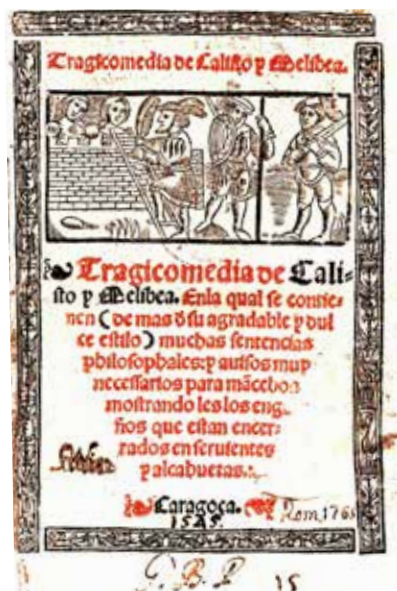 Tragicomedia de Calisto y Melibea.
Tragicomedia de Cali-
sto y Melibea. Enla qual se contie-
nen (de mas đ su agradable y dul
ce estilo) muchas sentencias
philosophales: y auisos muy
necessarios para mācebos
mostrando les los eng
ños que estan encer-
rados en seruientes
y alcahuetas.
Caragoça.
1545.
Rom, 176
G. B. P. 15